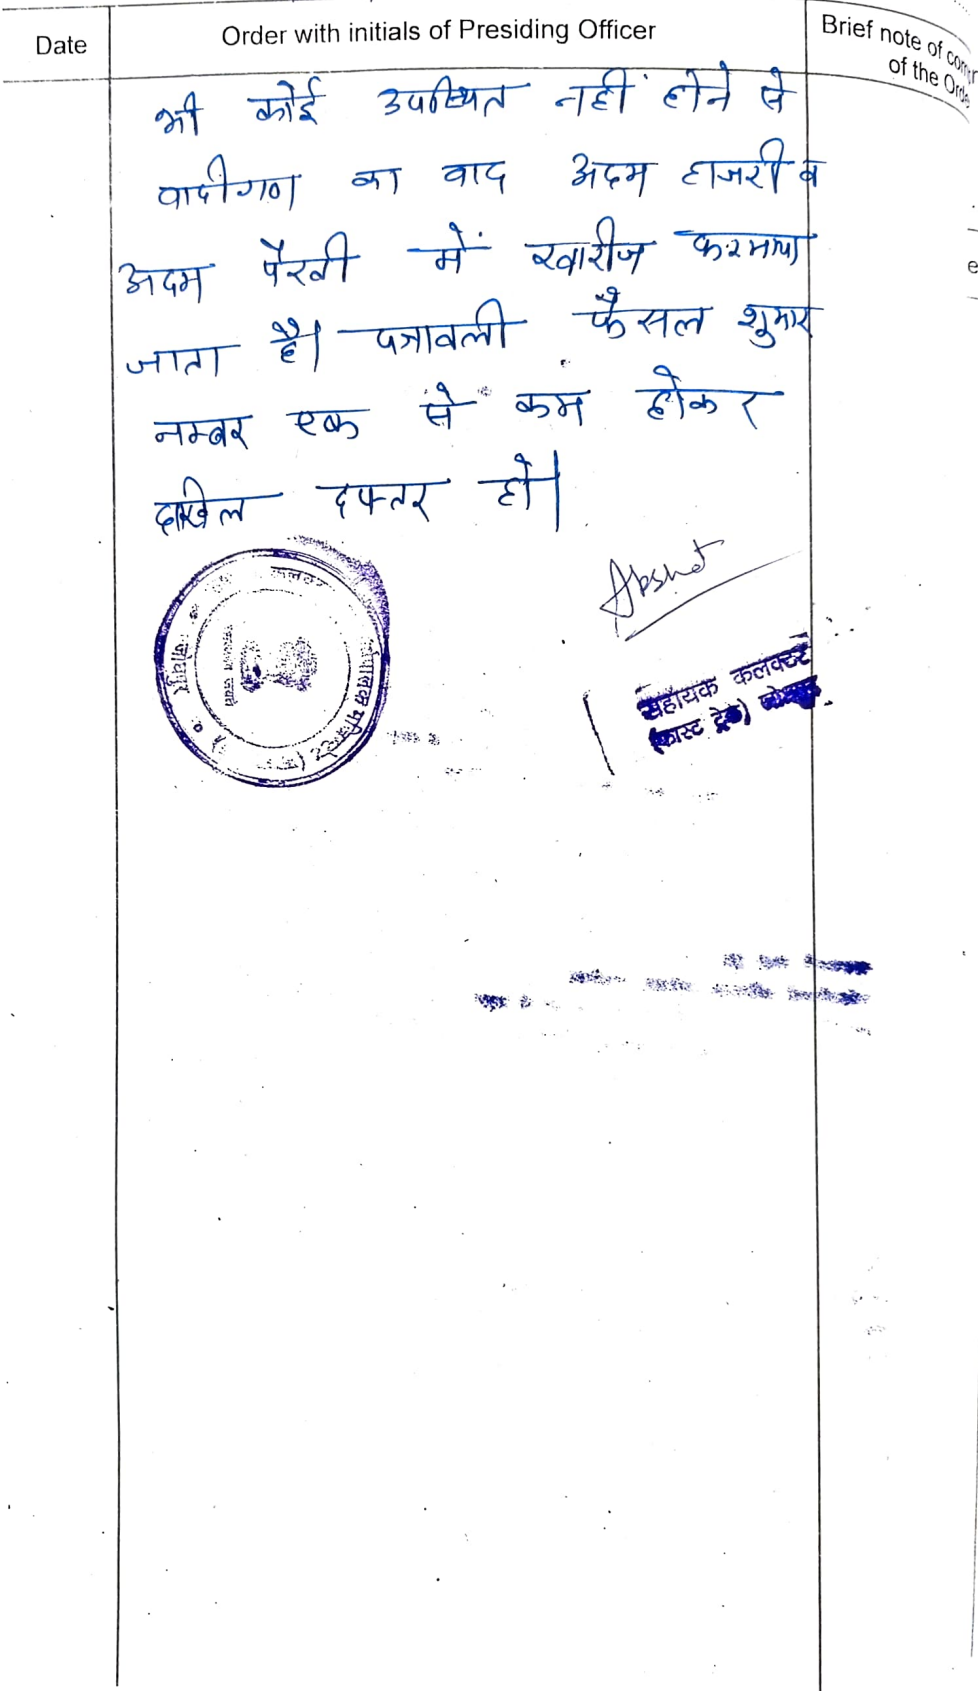 Date
Order with initials of Presiding Officer
Brief note of
of the
भी कोई उपस्थित नहीं होने से
वादीगण का वाद अदम हाजरी व
अदम पैरवी में खारीज फरमाया
जाता है। पत्रावली फैसल शुमार
नम्बर एक से कम होकर
दाखिल दफ्तर हो।
सहायक कलक्टर
(फास्ट ट्रेक)
जोधपुर